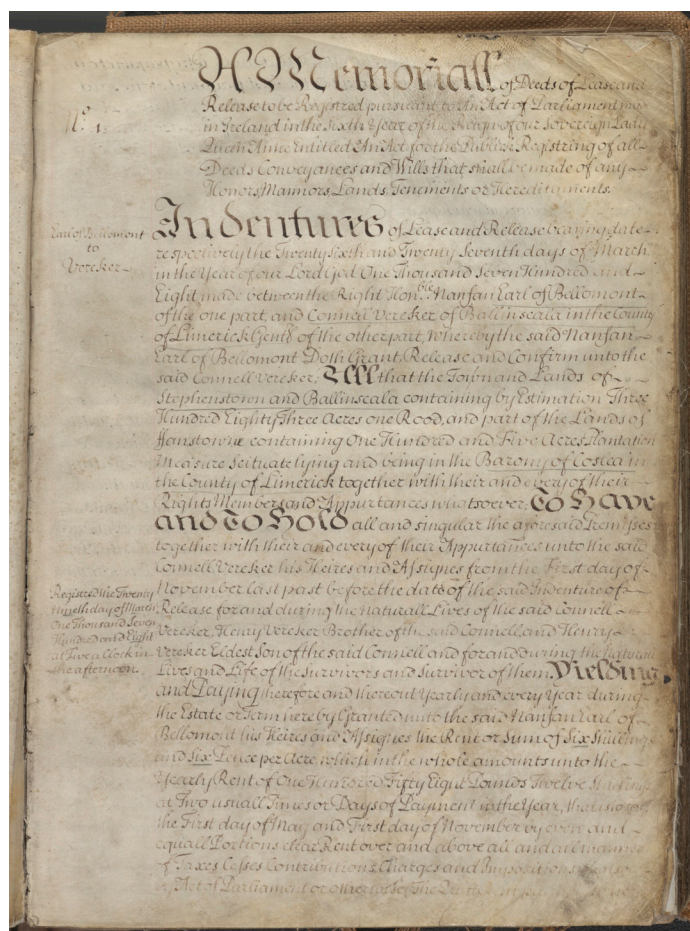 A Memoriall of Deeds of Lease and
Release to be Registred pursuant to An Act of Parliament made
in Ireland in the Sixth Year of the Reign of our Sovereign Lady
Queen Anne Entitled An Act for the Publick Registring of all
Deeds Conveyances and Wills that shall be made of any
Honors, Mannors, Lands, Tenements or Hereditaments.
No. 1.
Earl of Bellomont
to
Vereker
Indentures of Lease and Release bearing date
respectively the Twenty sixth and Twenty Seventh days of March
in the Year of our Lord God One Thousand Seven Hundred and
Eight made between the Right Honble. Nanfan Earl of Bellomont
of the one part, and Connell Vereker of Ballinscala in the County
of Limerick Gentt of the other part, Whereby the said Nanfan
Earl of Bellomont Doth Grant, Release and Confirm unto the
said Connell Vereker, All that the Town and Lands of
Stephenstown and Ballinscala containing by Estimation Three
Hundred Eighty Three Acres one Rood, and part of the Lands of
containing One Hundred and Five Acres Plantation
Measure Scituate lying and being in the Barony of Coslea in
the County of Limerick together with their and every of their
Rights Members and Appurtances whatsoever, To Have
and To Hold all and singular the aforesaid Premisses
together with their and every of their Appurtances unto the said
Connell Vereker his Heires and Assignes from the First day of
November last past before the date of the said Indenture of
Release for and during the Naturall Lives of the said Connell
Vereker, Henry Vereker Brother of the said Connell, and Henry
Vereker Eldest Son of the said Connell and for and during the Naturall
Lives and Life of the Survivors and Survivor of them. Yielding
and Paying therefore and thereout Yearly and every Year during
the Estate or Term hereby Granted unto the said Nanfan Earl of
Bellomont his Heires and Assignes the Rent or Sum of Six Shillings
and Six Pence per Acre, which in the whole amounts unto the
Yearly Rent of One Hundred Fifty Eight Pounds Twelve
at Two usuall Times or Days of Payment in the Year, that is to say
the First day of May and First day of November by even and
equall Portions clear Rent over and above all and all manner
of Taxes Cesses Contributions Charges and Impositions
by Act of Parliament or otherwise
Registred the Twenty
Nineth day of March
One Thousand Seven
Hundred and Eight
at Two a Clock in
the afternoon.